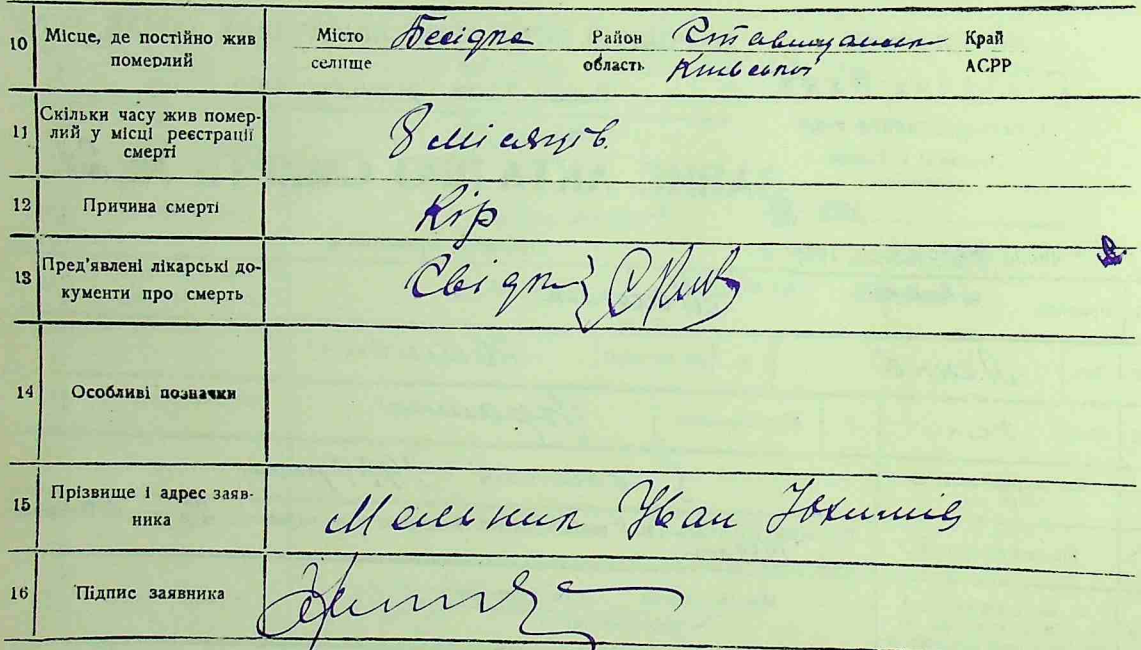 10 Місце, де постійно жив померлий Місто селище Бесідка Район область Ставищанськ Київської Край АСРР
11 Скільки часу жив помер-
лий у місці реєстрації
смерті 8 місяців.
12 Причина смерті Кір
13 Пред'явлені лікарські до-
кументи про смерть Свідки
14 Особливі позначки
15 Прізвище і адрес заяв-
ника Мельник Іван Юхимів
16 Підпис заявника